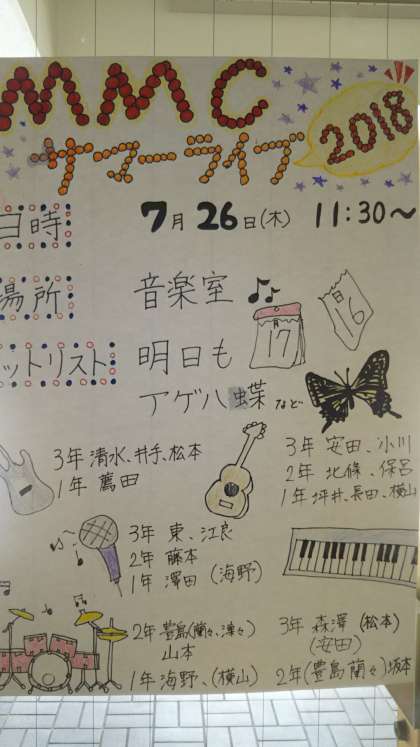 MMC
サマーライブ 2018
日時 7月26日(木) 11:30～
場所 音楽室
ットリスト 明日も
アゲハ蝶 など
日 16
月 17
3年 清水、井手、松本
1年 薦田
3年 安田、小川
2年 北條、保呂
1年 坪井、長田、横山
3年 東、江良
2年 藤本
1年 澤田 (海野)
2年 豊島(蘭々、凜々)
山本
1年 海野、(横山)
3年 森澤 (松本)
(安田)
2年(豊島 蘭々) 坂本